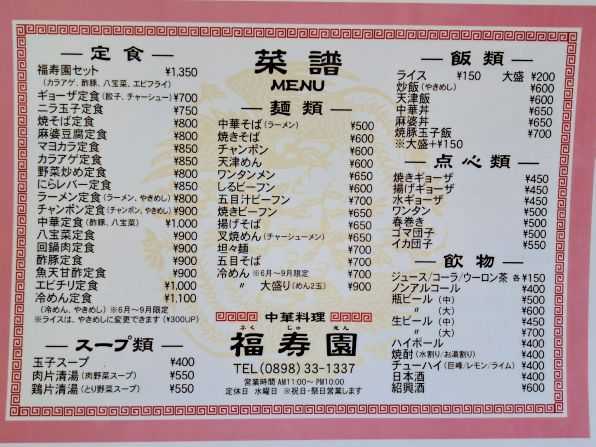 ― 定食 ―
福寿園セット ¥1,350
(カラアゲ、酢豚、八宝菜、エビフライ)
ギョーザ定食(餃子、チャーシュー) ¥700
ニラ玉子定食 ¥750
焼そば定食 ¥800
麻婆豆腐定食 ¥800
マヨカラ定食 ¥850
カラアゲ定食 ¥850
野菜炒め定食 ¥850
にらレバー定食 ¥850
ラーメン定食(ラーメン、やきめし) ¥800
チャンポン定食(チャンポン、やきめし) ¥900
中華定食(酢豚、八宝菜) ¥1,000
八宝菜定食 ¥900
回鍋肉定食 ¥900
酢豚定食 ¥900
魚天甘酢定食 ¥900
エビチリ定食 ¥1,000
冷めん定食 ¥1,100
(冷めん、やきめし) ※6月〜9月限定
※ライスは、やきめしに変更できます(¥300UP)
― スープ類 ―
玉子スープ ¥400
肉片清湯(肉野菜スープ) ¥550
鶏片清湯(とり野菜スープ) ¥550
菜譜
MENU
― 麺類 ―
中華そば(ラーメン) ¥500
焼きそば ¥600
チャンポン ¥600
天津めん ¥600
ワンタンメン ¥650
しるビーフン ¥650
五目汁ビーフン ¥700
焼きビーフン ¥650
揚げそば ¥650
叉焼めん(チャーシューメン) ¥650
坦々麺 ¥700
五目そば ¥650
冷めん ※6月〜9月限定 ¥700
〃 大盛り(めん2玉) ¥900
中華料理
ふく じゅ えん
福寿園
TEL(0898)33-1337
営業時間 AM11:00〜 PM10:00
定休日 水曜日 ※祝日・祭日営業します
― 飯類 ―
ライス ¥150 大盛 ¥200
炒飯(やきめし) ¥600
天津飯 ¥600
中華丼 ¥650
麻婆丼 ¥650
焼豚玉子飯 ¥700
※大盛+¥150
― 点心類 ―
焼きギョーザ ¥450
揚げギョーザ ¥450
水ギョーザ ¥450
ワンタン ¥500
春巻き ¥500
ゴマ団子 ¥500
イカ団子 ¥550
― 飲物 ―
ジュース/コーラ/ウーロン茶 各¥150
ノンアルコール ¥400
瓶ビール (中) ¥500
〃 (大) ¥600
生ビール (中) ¥500
〃 (大) ¥700
ハイボール ¥400
焼酎(水割り/お湯割り) ¥400
チューハイ(巨峰/レモン/ライム) ¥400
日本酒 ¥400
紹興酒 ¥600